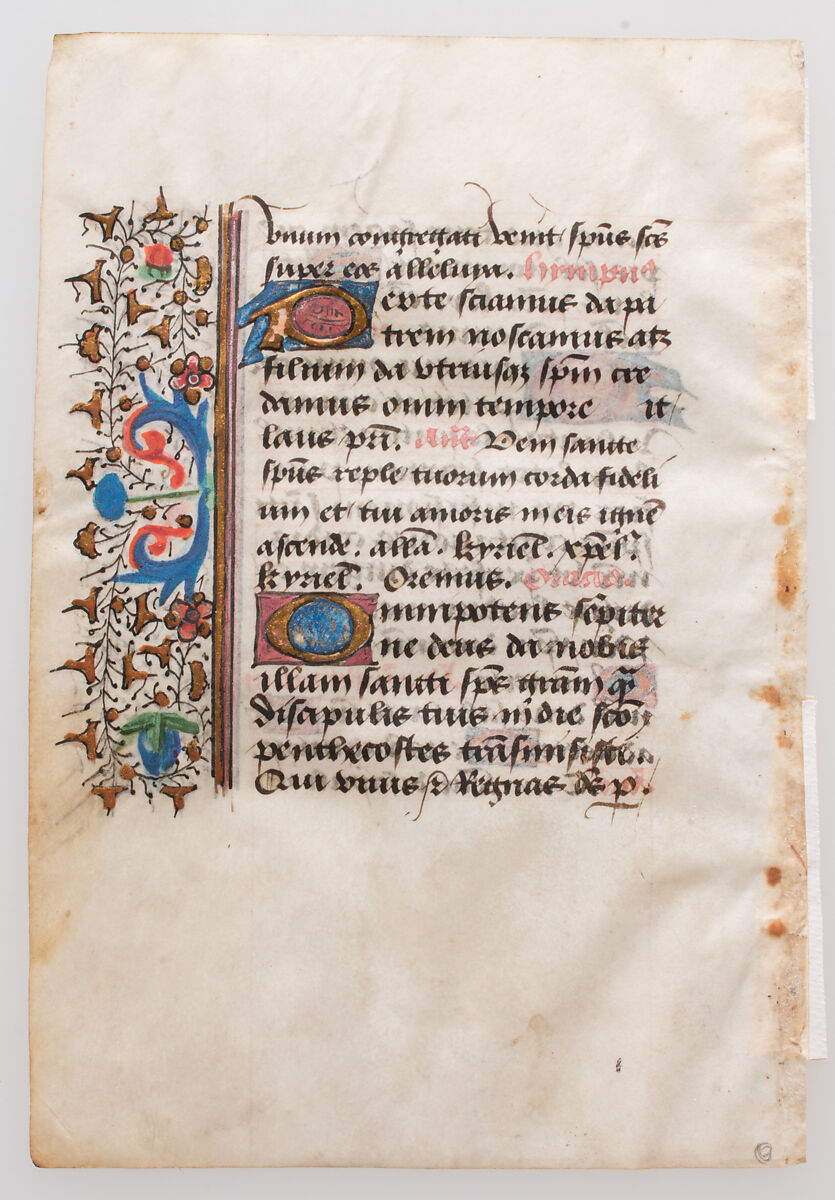 vnum congregati venit spūs scūs
super eos alleluia. hympnus
Per te sciamus da pa
trem noscamus atqz
filium da vtriusqz spm cre
damus omni tempore it
laus pri. Ant Veni sancte
spūs reple tuorum corda fideli
um et tui amoris in eis ignē
ascende. allā. kyriel. xpel.
kyriel. Oremus. Oratio.
Omnipotens sēpiter
ne deus da nobis
illam sancti sps grām quā
discipulis tuis in die scō
penthecostes transmisisti
Qui viuis et Regnas ds p.